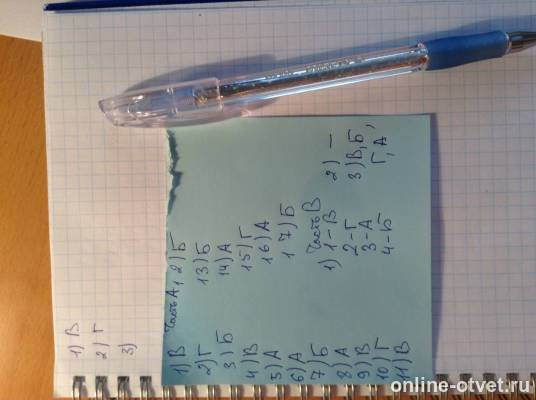 1) В
2) Г
3)
Часть А
1) В
2) Г
3) Б
4) В
5) А
6) А
7) Б
8) А
9) В
10) Г
11) В
12) Б
13) Б
14) А
15) Г
16) А
17) Б
Часть В
1) 1-В
2-Г
3-А
4-Б
2) —
3) В, Б,
Г, А
online-otvet.ru